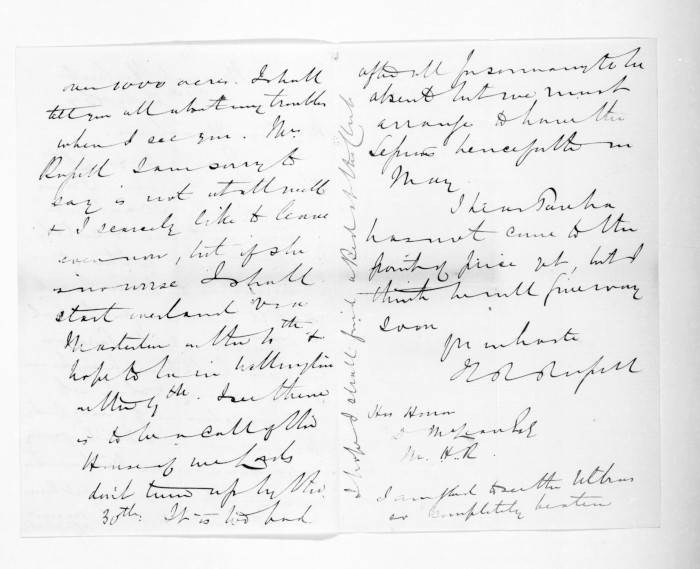 over 1000 acres. I shall
tell you all about my troubles
when I see you. Mrs
Russell I am sorry to
say is not at all well
& I scarcely like to leave
even now, but if she
is no worse I shall
start overland via
Masterton on the 6th &
hope to be in Wellington
on the 9th. I see there
is to be a call of the
House if we Lords
don't turn up by the
30th. It is too bad
after all for so many to be
absent but we must
arrange to have the
Session henceforth in
May.
I hear Tareha
has not come to the
point of price yet, but I
think he will give way
soon
Yr in haste
H R Russell
His Honor
D McLean Esq
M. H. R.
I am glad to see the Ultras
so completely beaten
I hope I shall find a Bed at the Club